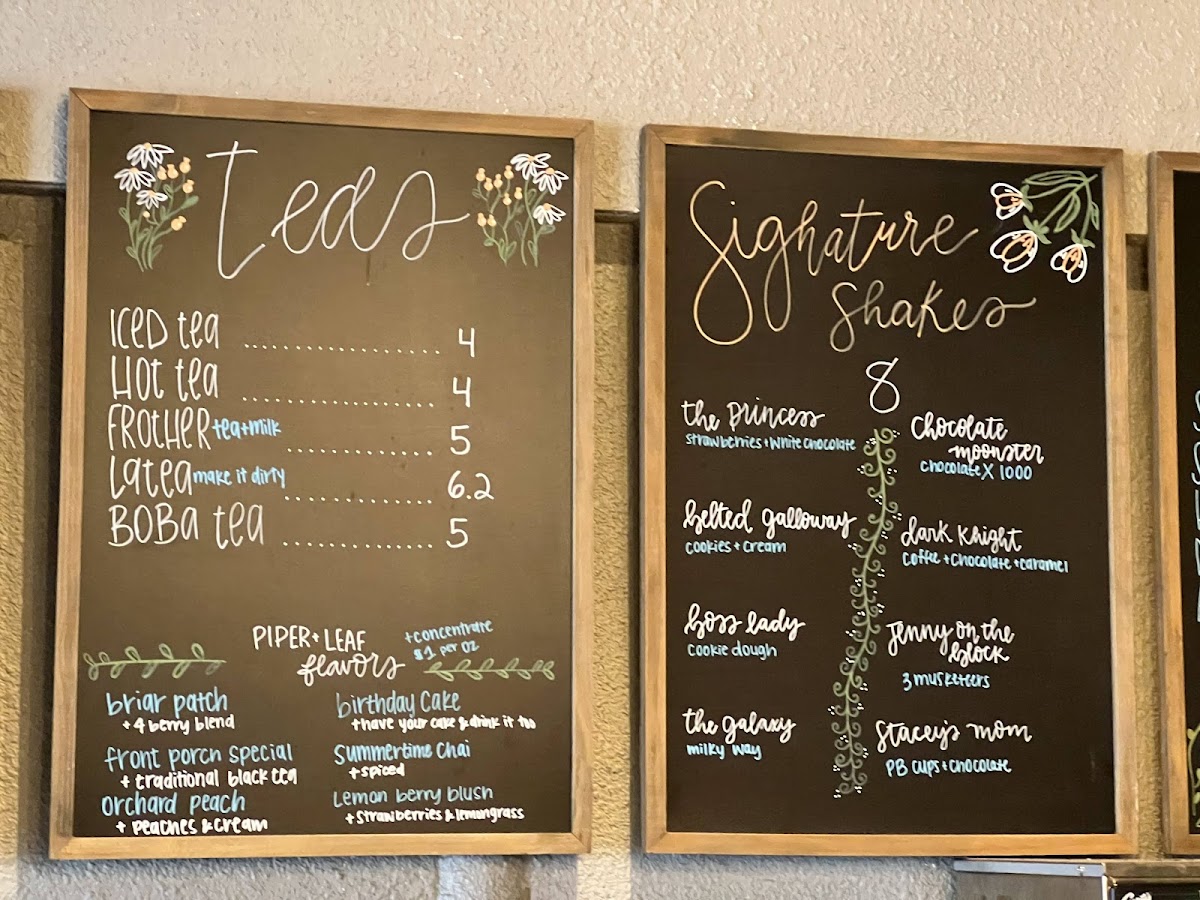 teas
ICED tea .................... 4
HOT tea .................... 4
FROTHER tea+milk ............... 5
Latea make it dirty ............... 6.2
BOBa tea ............... 5
PIPER + LEAF
flavors
+concentrate
$1 per oz
briar patch
+ 4 berry blend
front porch special
+ traditional black tea
orchard peach
+ peaches & cream
birthday cake
+have your cake & drink it too
Summertime Chai
+spiced
Lemon berry blush
+ strawberries & lemongrass
Signature
Shakes
8
the princess
strawberries + white chocolate
belted galloway
cookies + cream
boss lady
cookie dough
the galaxy
milky way
Chocolate
moonster
chocolate X 1000
dark knight
coffee + chocolate + caramel
Jenny on the
block
3 musketeers
Stacey's mom
PB cups + chocolate